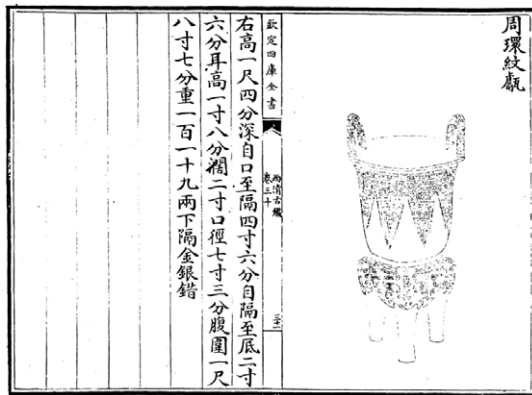 周環紋甗
欽定四庫全書
西清古鑑
卷三十
三十一
右高一尺四分深自口至隔四寸六分自隔至底二寸
六分耳高一寸八分濶二寸口徑七寸三分腹圍一尺
八寸七分重一百一十九兩下隔金銀錯